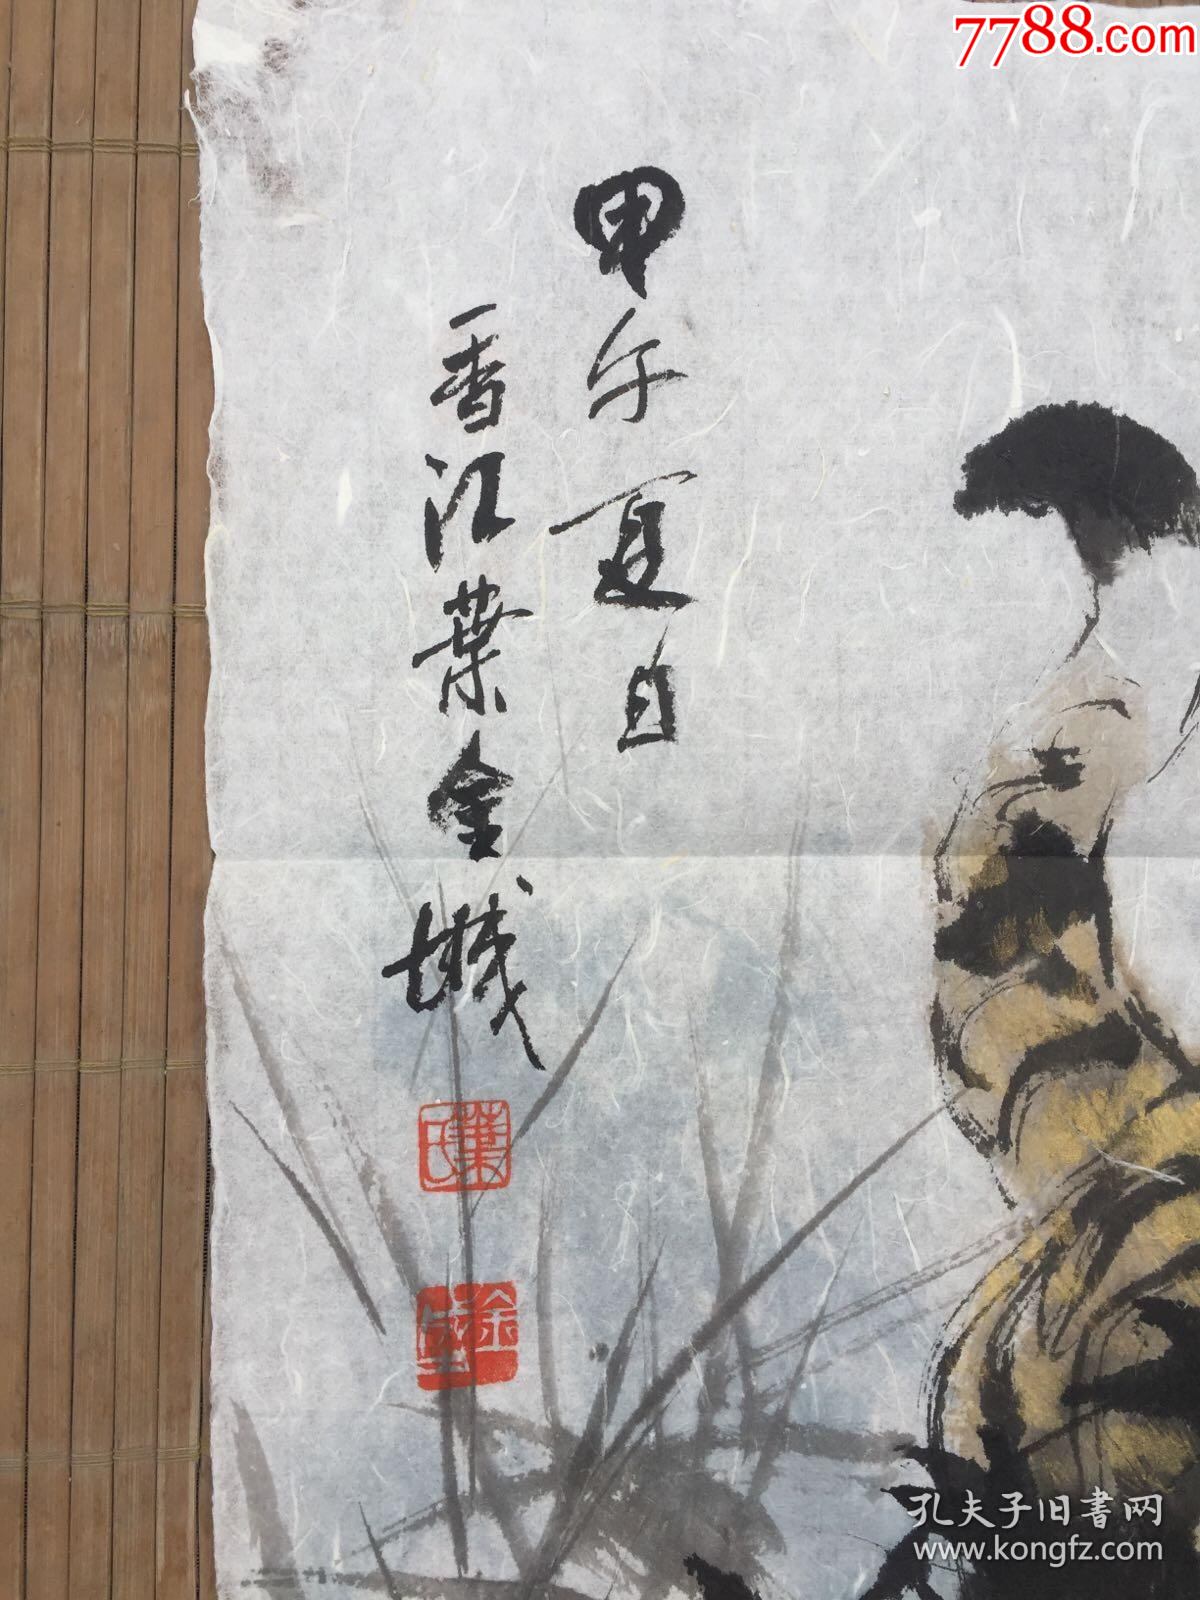 7788.com
甲午夏日
香江葉金城
葉氏
孔夫子旧書网
www.kongfz.com